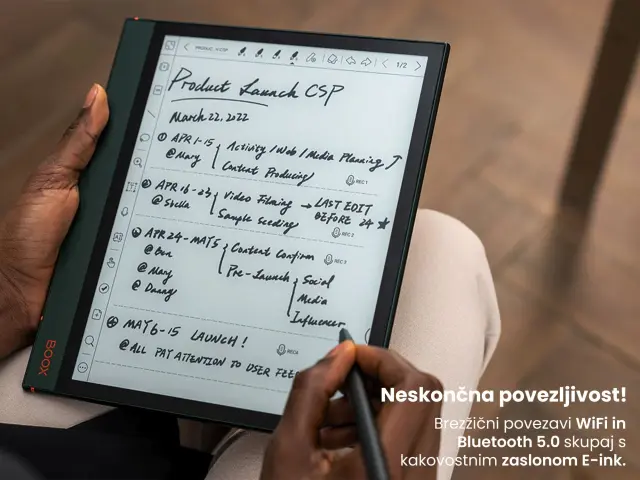 PRODUCT...H CSP
1/2
Product Launch CSP
March 22, 2022
① APR 1-15 Activity / Web / Media Planning
@Mary Content Producing
REC 1
② APR 16-23 Video Filming → LAST EDIT
@Stella Sample Seeding BEFORE 24 ★
REC 2
③ APR 24-MAY 5 Content Confirm
REC 3
@Ben Pre-Launch Social
@Mary Media
@Danny Influencer
④ MAY 6-15 LAUNCH!
REC 4
@ALL PAY ATTENTION TO USER FEE
BOOX
Neskončna povezljivost!
Brezžični povezavi WiFi in
Bluetooth 5.0 skupaj s
kakovostnim zaslonom E-ink.